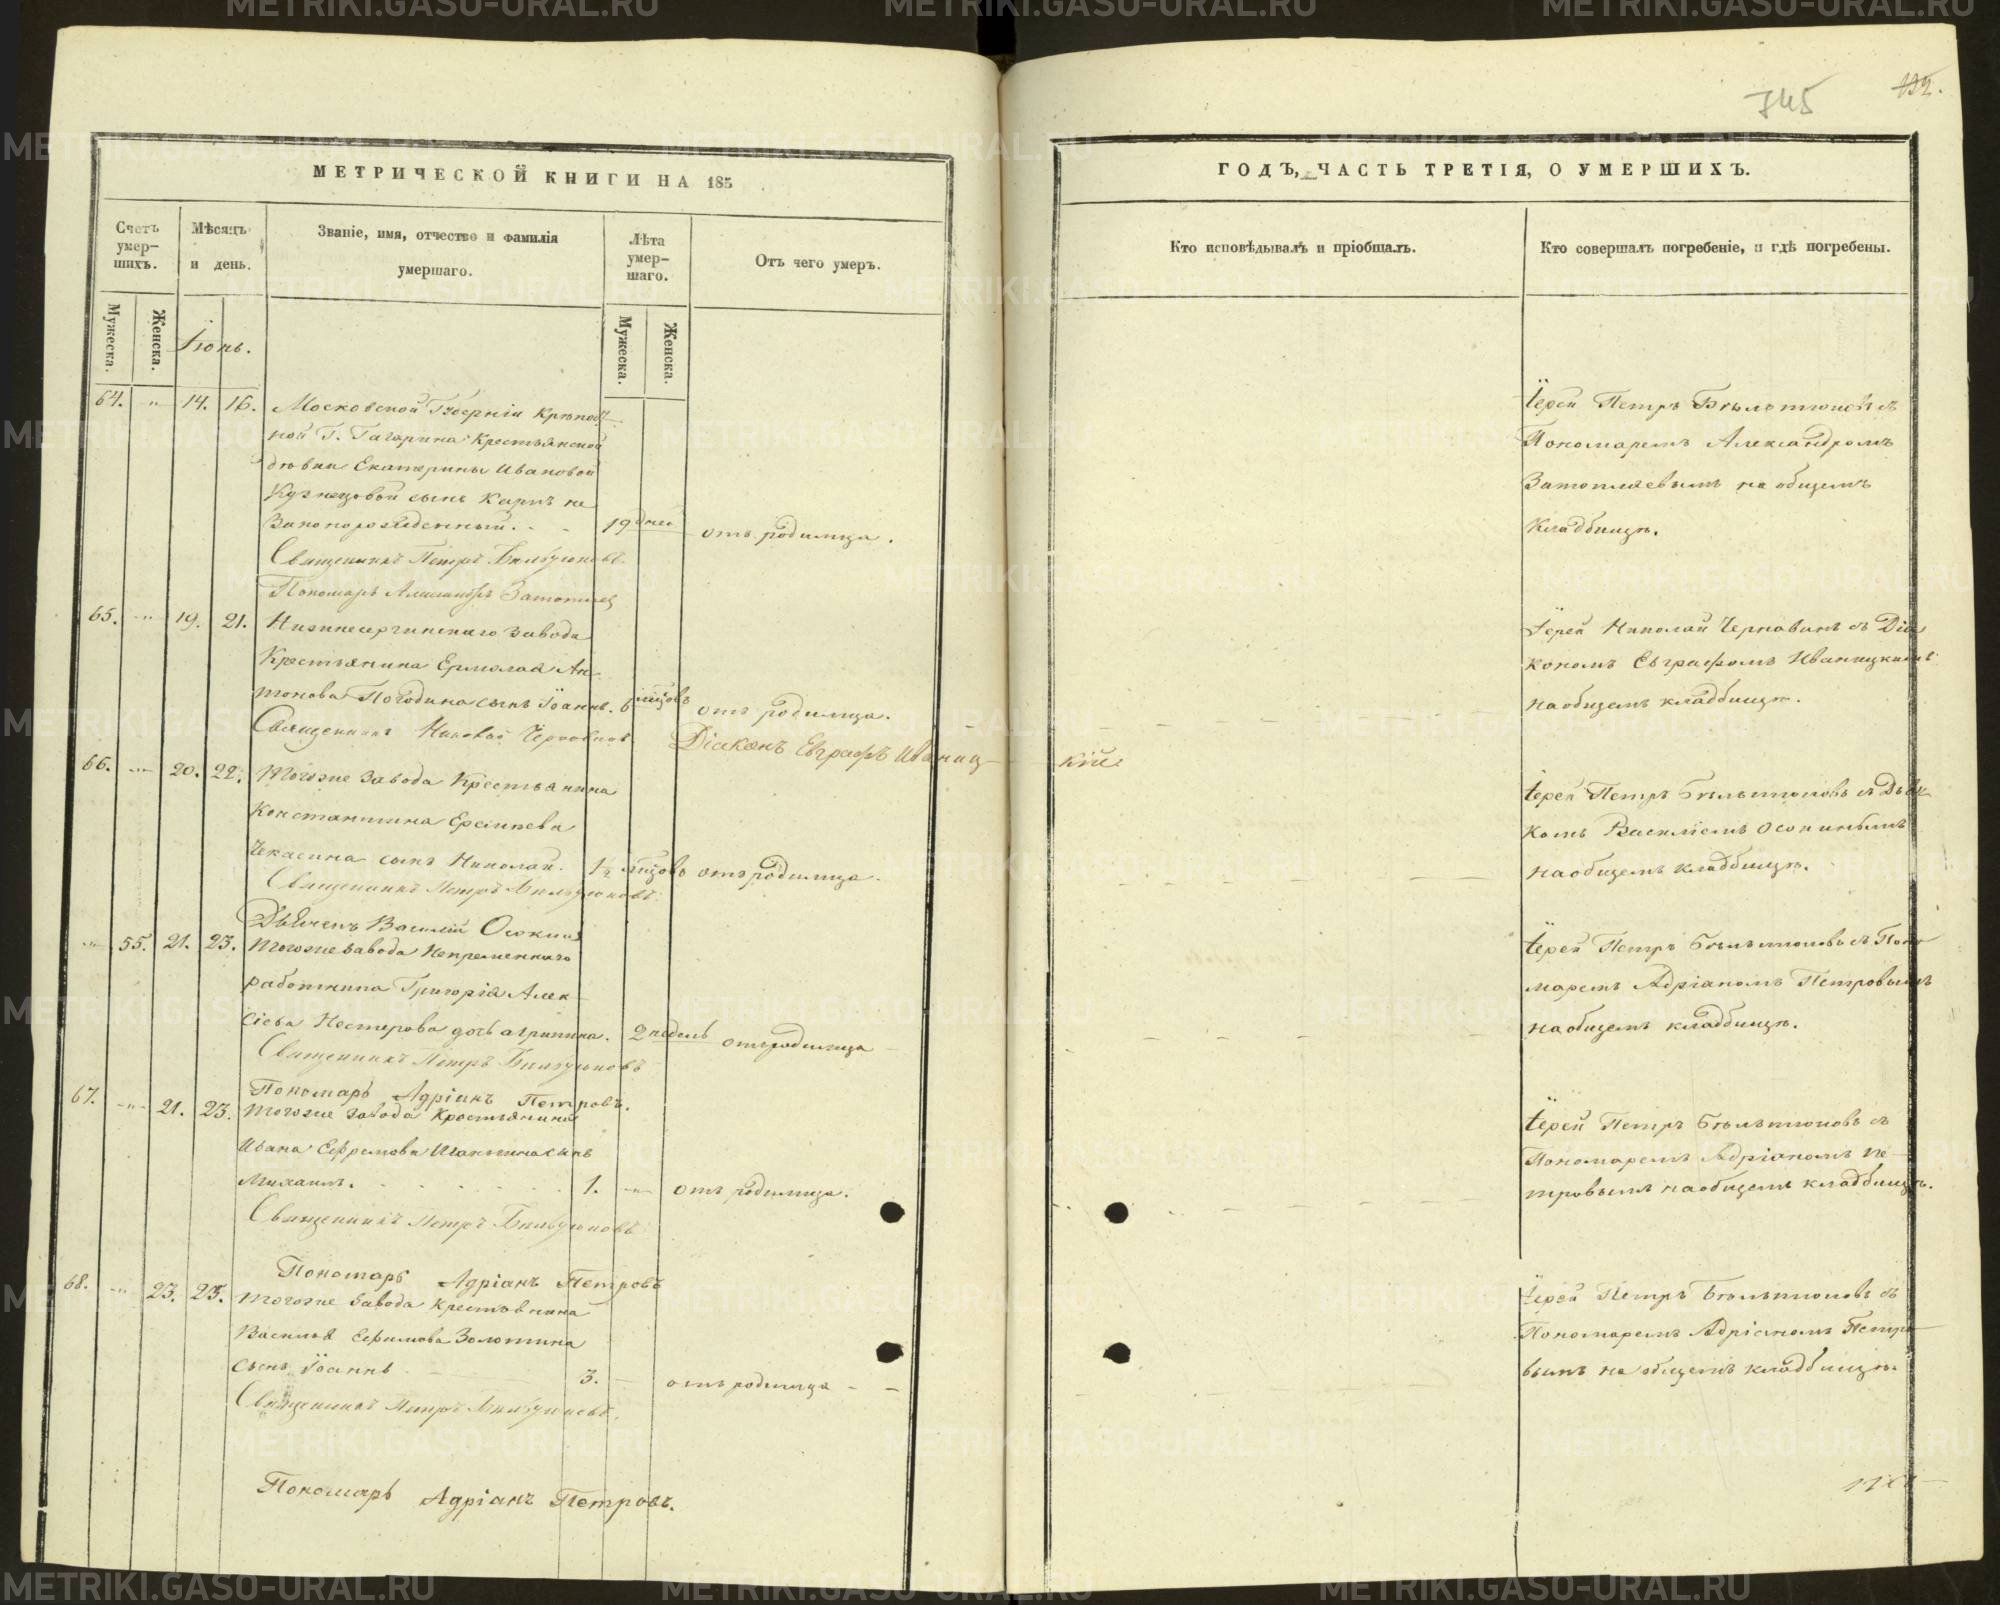 745
132.
МЕТРИЧЕСКОЙ КНИГИ НА 185
Счетъ умер-шихъ.
Мѣсяцъ и день.
Званіе, имя, отчество и фамилія
умершаго.
Лѣта умер-шаго.
Отъ чего умеръ.
Мужеска.
Женска.
Іюнь.
Мужеска.
Женска.
64. " 14. 16. Московской Губерніи Крѣпост-
ной Г. Гагарина Крестьянской
дѣвки Екатерины Ивановой
Кузнецовой сынъ Карпъ не
Законорожденный. 19 дней отъ родимца.
Священникъ Петръ Бѣльтюковъ
Пономарь Александръ Затопляев
65. " 19. 21. Нижнесергинскаго завода
Крестьянина Ермолая Ан-
тонова Погодина сынъ Іоаннъ. 6 мѣсяцовъ отъ родимца.
Священникъ Николай Черновинъ Діаконъ Евграфъ Иваниц-
кій
66. " 20. 22. Тогоже завода Крестьянина
Константина
сынъ Николай. 1½ мѣсяцовъ отъ родимца.
Священникъ Петръ Бѣльтюковъ
Дьячекъ Василій Осокинъ
" 55. 21. 23. Тогоже завода Непременнаго
работника Григорія Алек-
сіева Нестерова дочь агрипина. 2 недель отъ родимца
Священникъ Петръ Бѣльтюковъ
Пономарь Адріанъ Петровъ.
67. " 21. 23. Тогоже завода Крестьянина
Ивана Ефремова сынъ
Михаилъ. 1. " отъ родимца.
Священникъ Петръ Бѣльтюковъ
Пономарь Адріанъ Петровъ
68. " 23. 25. Тогоже завода Крестьянина
Василья Ефимова Золотина
сынъ Іоаннъ 3. отъ родимца
Священникъ Петръ Бѣльтюковъ.
Пономарь Адріанъ Петровъ.
ГОДЪ, ЧАСТЬ ТРЕТІЯ, О УМЕРШИХЪ.
Кто исповѣдывалъ и пріобщалъ.
Кто совершалъ погребеніе, и гдѣ погребены.
Іерей Петръ Бѣльтюковъ съ
Пономаремъ Александромъ
Затопляевымъ на общемъ
кладбищѣ.
Іерей Николай Черновинъ съ Діа
кономъ Евграфомъ Иваницкимъ
на общемъ кладбищѣ.
Іерей Петръ Бѣльтюковъ съ Дьяч
комъ Василіемъ Осокинымъ
на общемъ кладбищѣ.
Іерей Петръ Бѣльтюковъ съ Поно
маремъ Адріаномъ Петровымъ
на общемъ кладбищѣ.
Іерей Петръ Бѣльтюковъ съ
Пономаремъ Адріаномъ Пе-
тровымъ на общемъ кладбищѣ.
Іерей Петръ Бѣльтюковъ съ
Пономаремъ Адріаномъ Петро
вымъ на общемъ кладбищѣ.
METRIKI.GASO-URAL.RU